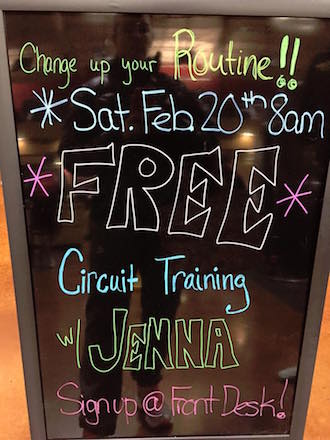 Change up your Routine!!
*Sat. Feb. 20th 8am
*FREE*
Circuit Training
w/ JENNA
Sign up @ Front Desk!